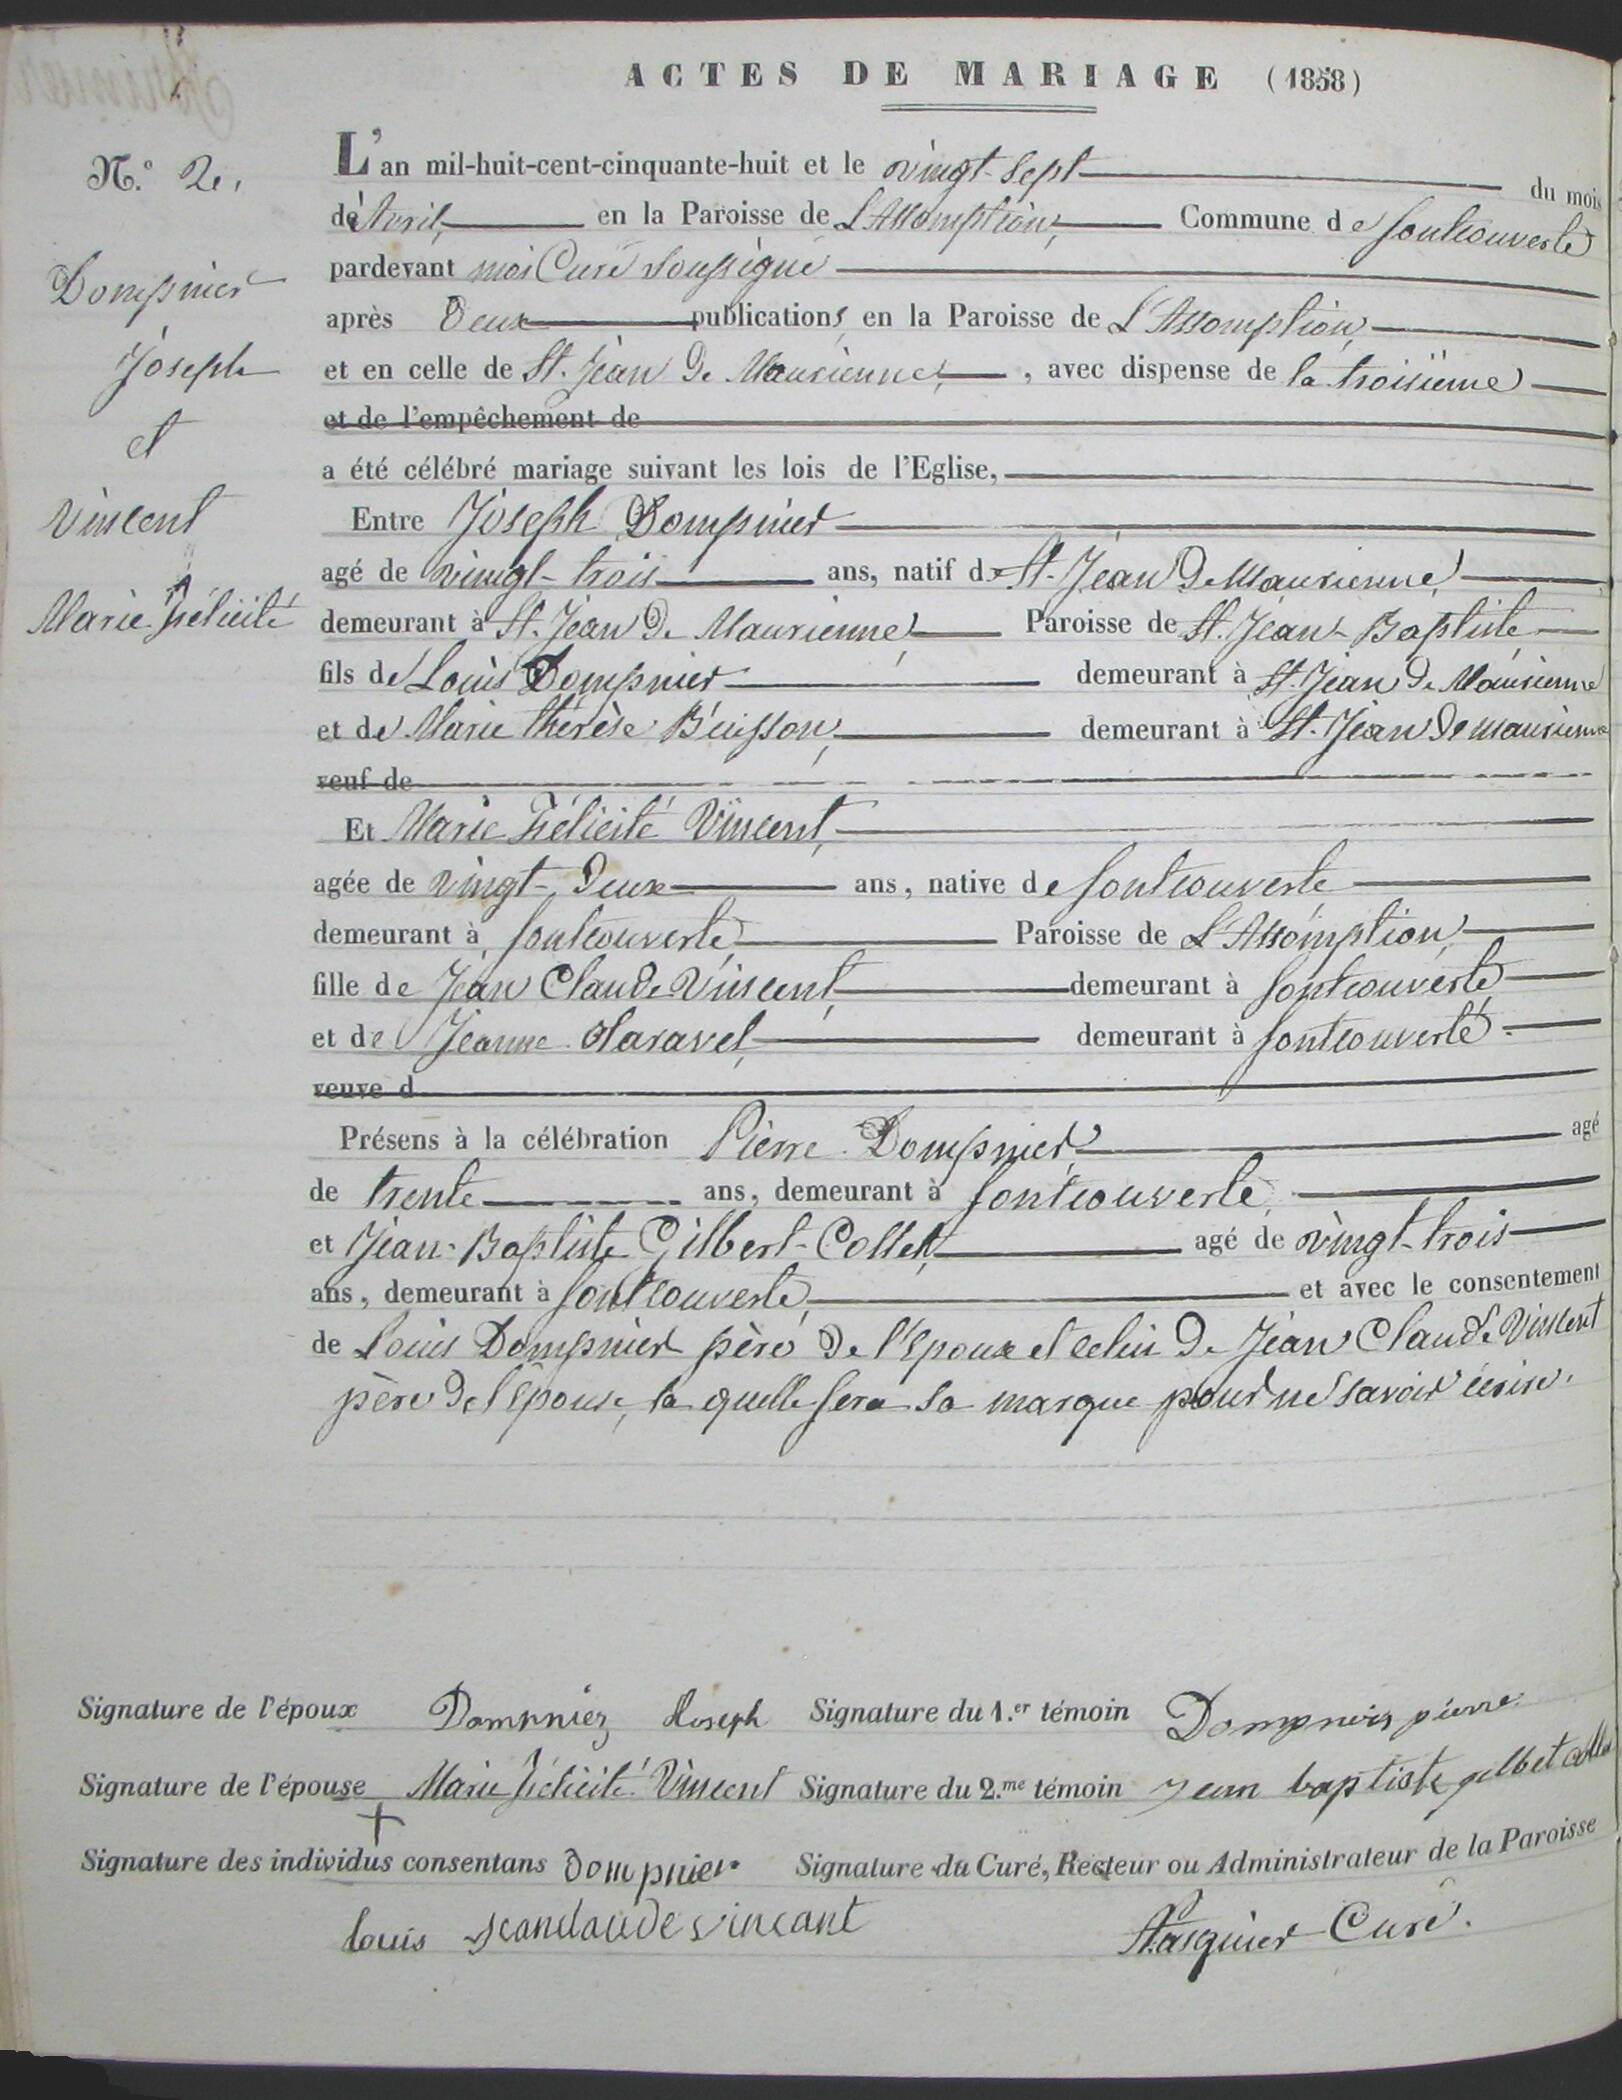 ACTES DE MARIAGE (1858)
N.º 2.
L'an mil-huit-cent-cinquante-huit et le vingt-sept du mois
d'Avril, en la Paroisse de L'Assomption, Commune de fontcouverte
pardevant moi Curé soussigné
après Deux publications en la Paroisse de L'Assomption,
et en celle de St. Jean De Maurienne, avec dispense de la troisième
et de l'empêchement de
a été célébré mariage suivant les lois de l'Eglise,
Dompnier
Joseph
et
Vincent
Marie Félicité
Entre Joseph Dompnier
agé de vingt-trois ans, natif de St. Jean De Maurienne,
demeurant à St. Jean De Maurienne, Paroisse de St. Jean-Baptiste
fils de Louis Dompnier demeurant à St. Jean De Maurienne
et de Marie thérèse Buisson, demeurant à St. Jean De maurienne
veuf de
Et Marie Félicité Vincent,
agée de vingt-Deux ans, native de fontcouverte
demeurant à fontcouverte, Paroisse de L'Assomption,
fille de Jean Claude Vincent, demeurant à fontcouverte
et de Jeanne Claravel, demeurant à fontcouverte.
veuve d
Présens à la célébration Pierre Dompnier, agé
de trente ans, demeurant à fontcouverte,
et Jean-Baptiste Gilbert-Collet, agé de vingt-trois
ans, demeurant à fontcouverte, et avec le consentement
de Louis Dompnier père De l'Epoux et celui De Jean Claude Vincent
père De l'Epouse, la quelle fera sa marque pour ne savoir écrire.
Signature de l'époux Dompnier Joseph Signature du 1.er témoin Dompnier pierre
Signature de l'épouse Marie Félicité Vincent Signature du 2.me témoin jean baptiste gilbet collet
+
Signature des individus consentans dompnier Signature du Curé, Recteur ou Administrateur de la Paroisse
louis jeanclaude vincant Pasquier Curé.